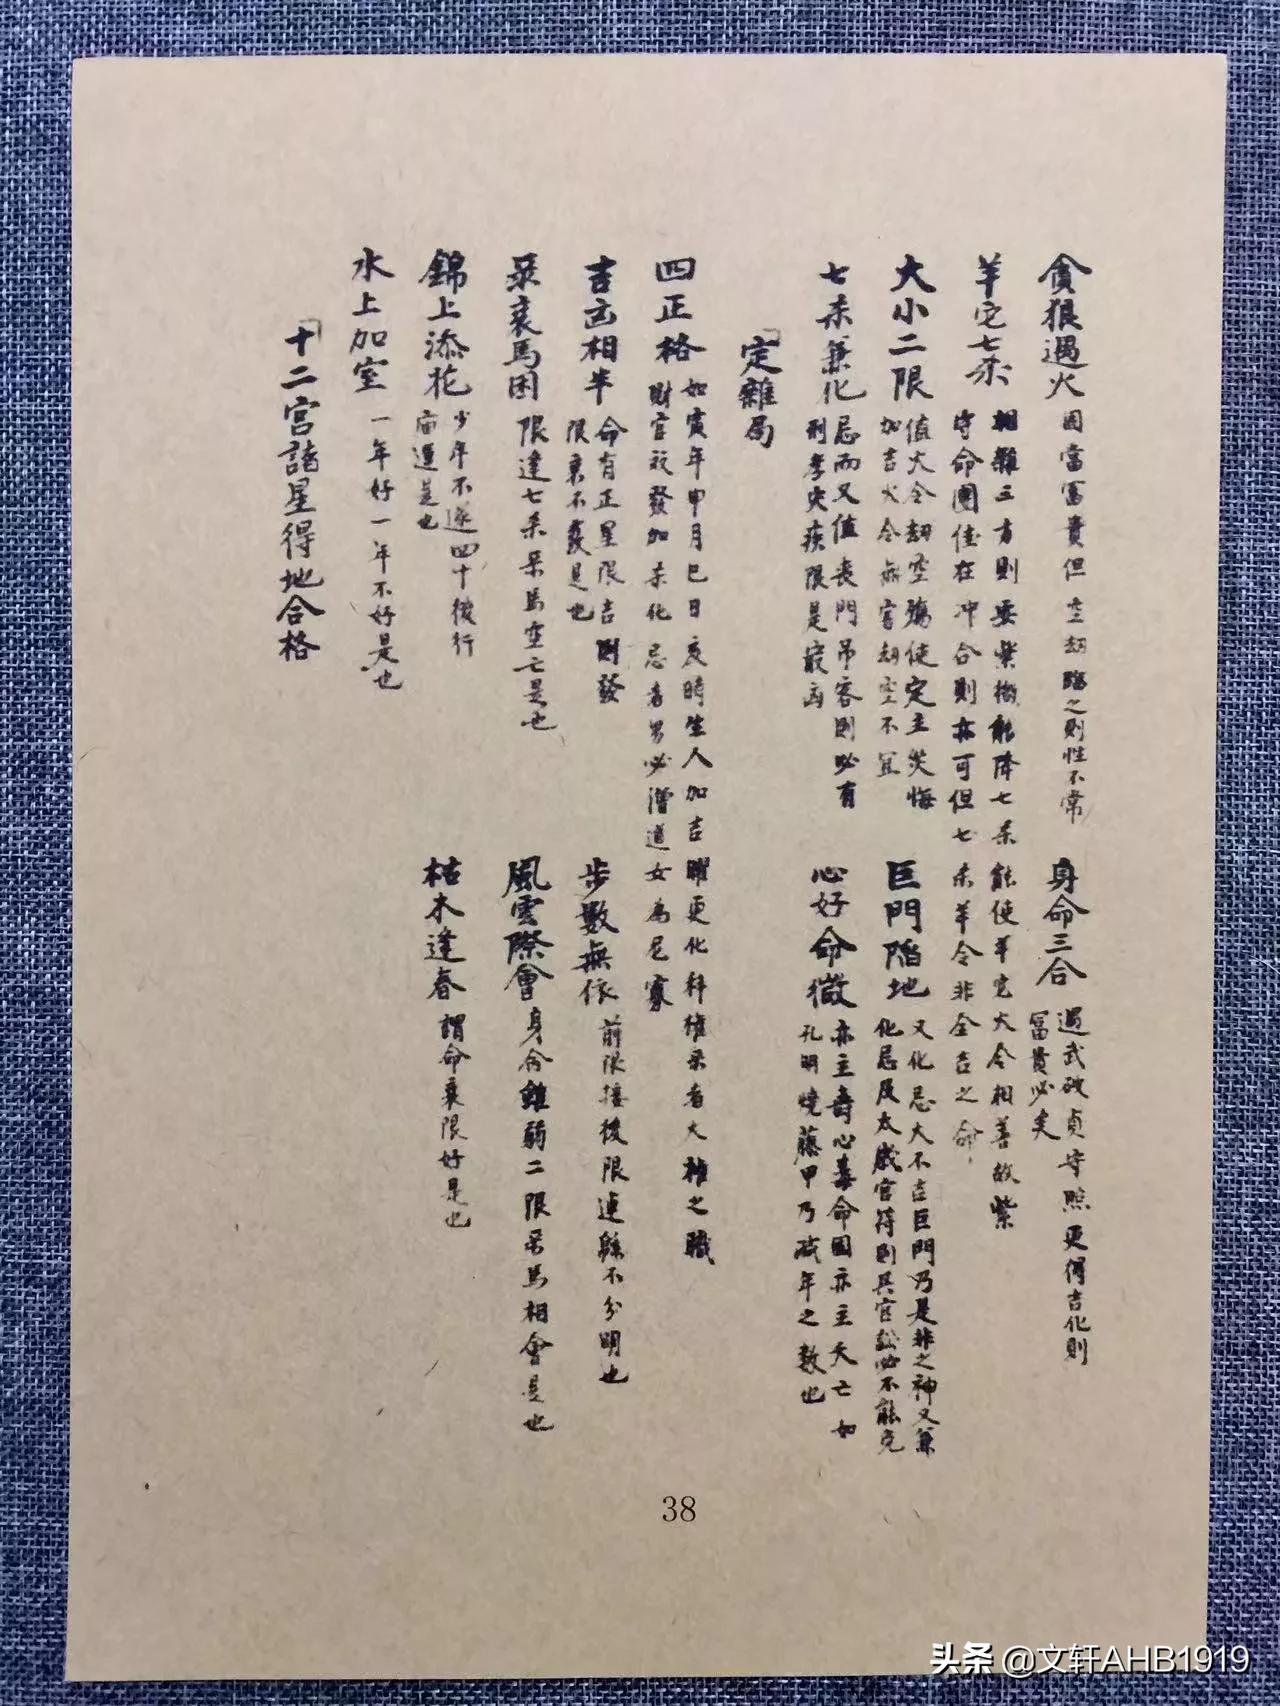 貪狼遇火
因當富貴但空劫臨之則性不常
身命三合
過武破貞守照更得吉化則
冨貴必矣
羊陀七杀
相雜三方則要紫微能降七杀能使羊陀火令相善故紫
守命圍佳在冲合則亦可但七杀羊令非全吉之命
大小二限
值火令劫空殤使定主災悔
加吉火令無害劫空不宜
巨門陷地
又化忌大不吉巨門乃是非之神又兼
化忌及太歲官符則興官訟必不能免
七杀兼化
忌而又值喪門吊客則必有
刑孝灾疾限是寂凶
心好命微
亦主壽心毒命固亦主夭亡如
孔明燒藤甲乃減年之数也
「定雜局
四正格
如寅年申月巳日亥時生人加吉曜更化科權彔者大權之職
財官祿發加杀化忌者男必僧道女為尼寡
吉凶相半
命有正星限吉則發
限衰不發是也
步數無依
前限接後限連緜不分明也
彔衰馬困
限逢七杀彔馬空亡是也
風雲際會
身命雖弱二限彔馬相會是也
錦上添花
少年不遂四十後行
庙運是也
枯木逢春
謂命衰限好是也
水上加室
一年好一年不好是也
「十二宮諸星得地合格
38
头条 @文轩AHB1919